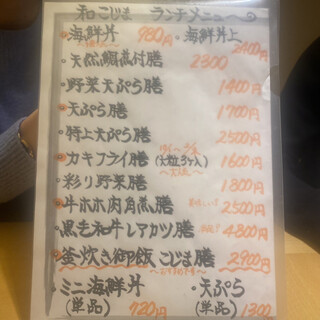 和こじま ランチメニュー
・海鮮丼 980円 ・海鮮丼上 2400円
・天然鯛 付膳 2300
・野菜天ぷら膳 1400円
・天ぷら膳 1700円
・特上天ぷら膳 2500円
・カキフライ膳 (大粒3ヶ入) 1600円
・彩り野菜膳 1800円
・牛ホホ肉角煮膳 2500円
・黒毛和牛レアカツ膳 4800円
・釜炊き御飯 こじま膳 2900円
・ミニ海鮮丼 (単品) 720円
・天ぷら (単品) 1300